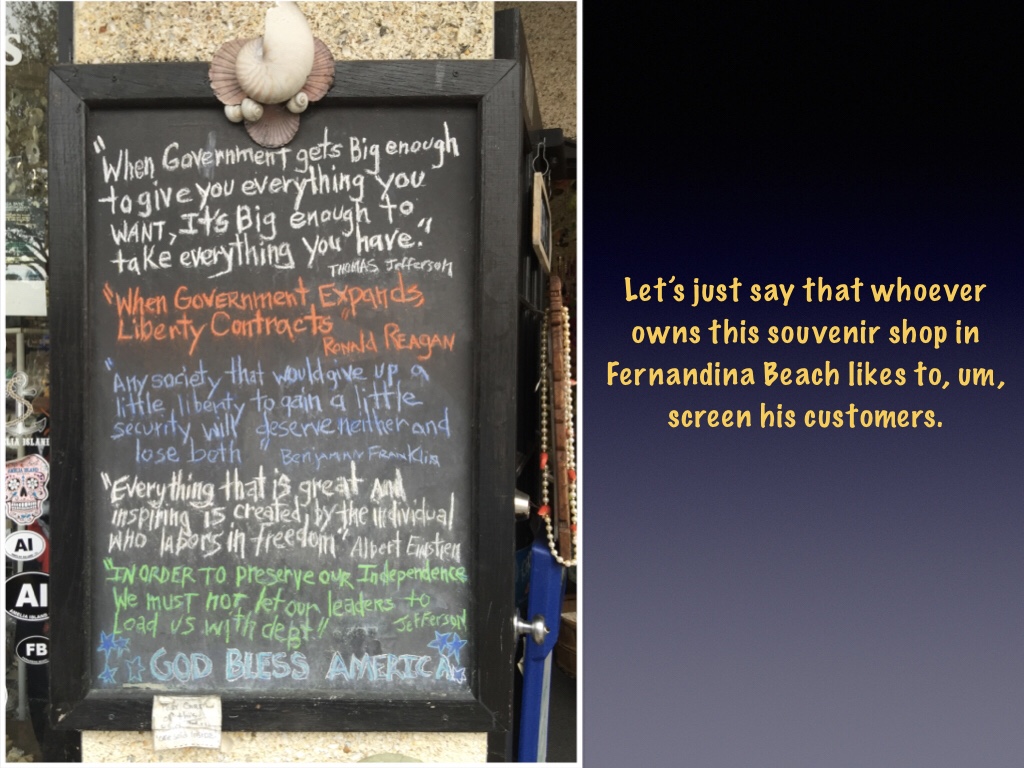 "When Government gets Big enough
to give you everything you
WANT, It's Big enough to
take everything you have."
THOMAS Jefferson
"When Government Expands,
Liberty Contracts"
Ronald Reagan
"Any society that would give up a
little liberty to gain a little
security will deserve neither and
lose both
Benjamin Franklin
"Everything that is great and
inspiring is created by the individual
who labors in freedom" Albert Einstien
"IN ORDER TO preserve our Independence
We must not let our leaders to
Load us with dept"
Jefferson
GOD BLESS AMERICA
S
LIA ISLAND
AI
AI
AMELIA ISLAND
FB
Let's just say that whoever
owns this souvenir shop in
Fernandina Beach likes to, um,
screen his customers.